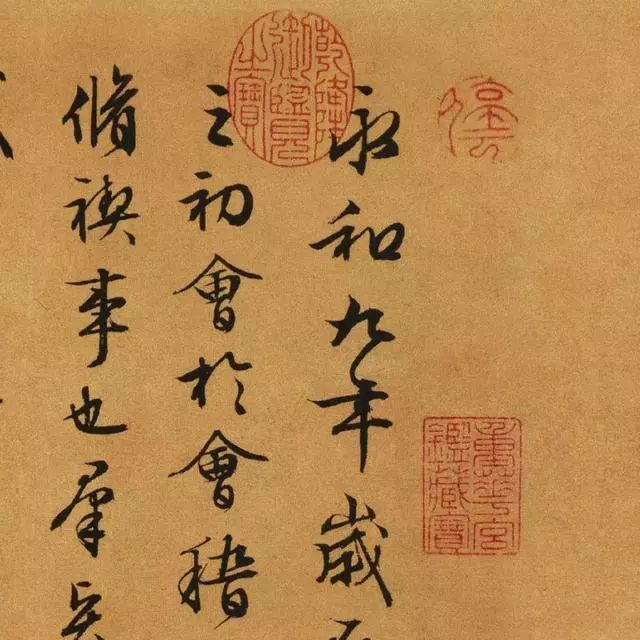 重華宮鑑藏寶
永和九年歲
乾隆御覽之寶
之初會於會稽
脩禊事也羣